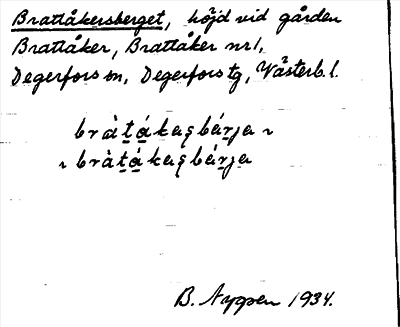 Brattåkersberget, höjd vid gården
Brattåker, Brattåker nr 1,
Degerfors sn, Degerfors tg, Västerb. l.
bràt̲á̲kaʂbár̲ja
bràt̲á̲kaʂbár̲ja
B. 1934.